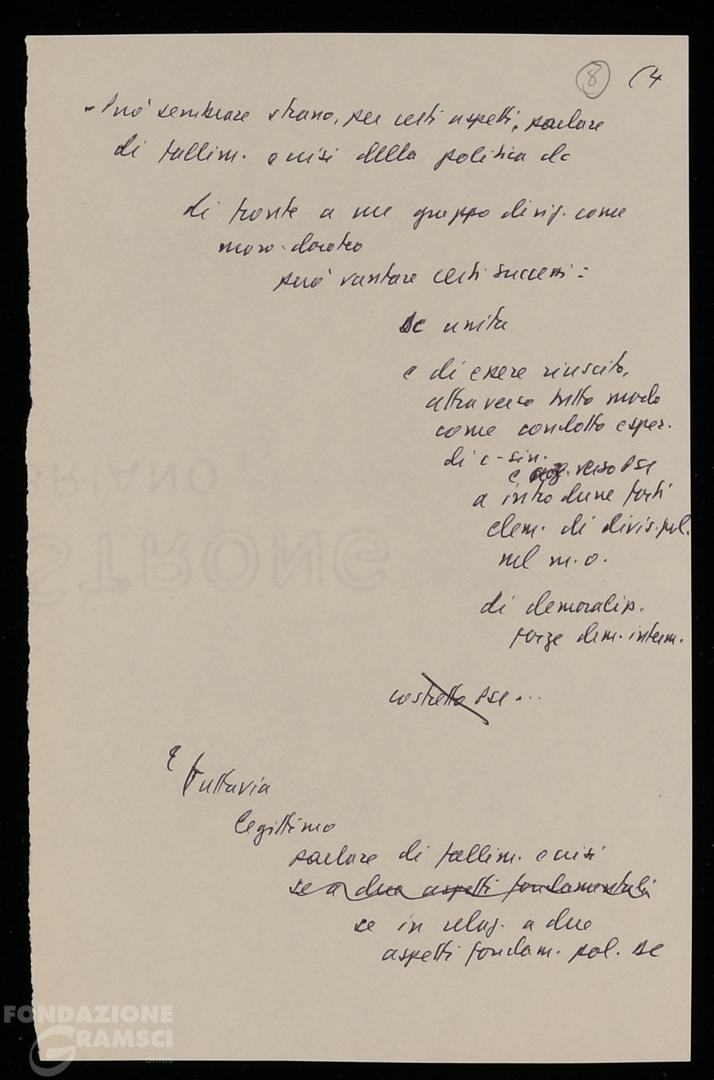 8 (4
- Può sembrare strano, per certi aspetti, parlare
di fallim. e crisi della politica dc
di fronte a un gruppo dirig. come
moro-doroteo
può vantare certi successi:
DC unita
e di essere riuscito,
attraverso tutto modo
come condotto esper.
di c-sin.
e verso PSI
a introdurre forti
elem. di divis. pol.
nel m.o.
di demoralizz.
forze dem. interm.
costretto PSI...
E tuttavia
legittimo
parlare di fallim. e crisi
se a due aspetti fondamentali
se in relaz. a due
aspetti fondam. pol. DC
BRIANO
STRONG
FONDAZIONE
GRAMSCI
onlus